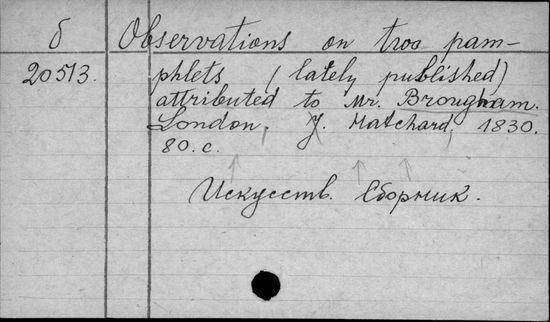 б Observations on two pam-
20513. phlets (lately published)
attributed to Mr. Brougham.
London, J. Hatchard, 1830.
80. c.
Искусств. Сборник.